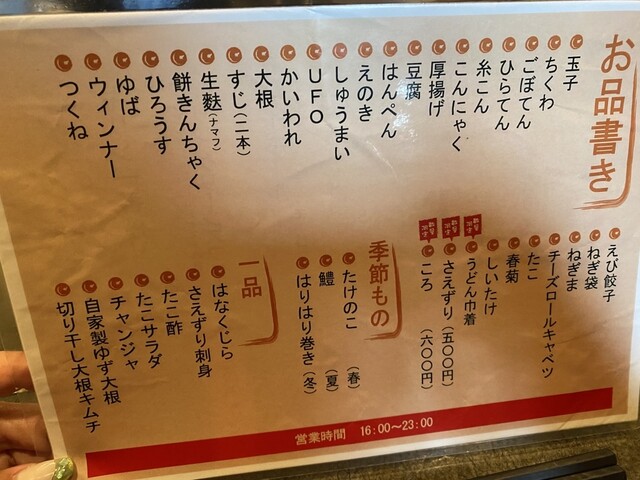 お品書き
玉子
ちくわ
ごぼてん
ひらてん
糸こん
こんにゃく
厚揚げ
豆腐
はんぺん
えのき
しゅうまい
UFO
かいわれ
大根
すじ（二本）
生麩（ナマフ）
餅きんちゃく
ひろうす
ゆば
ウィンナー
つくね
えび餃子
ねぎ袋
ねぎま
チーズロールキャベツ
たこ
春菊
しいたけ
うどん巾着
さえずり（五〇〇円）
ころ（六〇〇円）
季節もの
たけのこ（春）
鱧（夏）
はりはり巻き（冬）
一品
はなくじら
さえずり刺身
たこ酢
たこサラダ
チャンジャ
自家製ゆず大根
切り干し大根キムチ
営業時間 16:00〜23:00